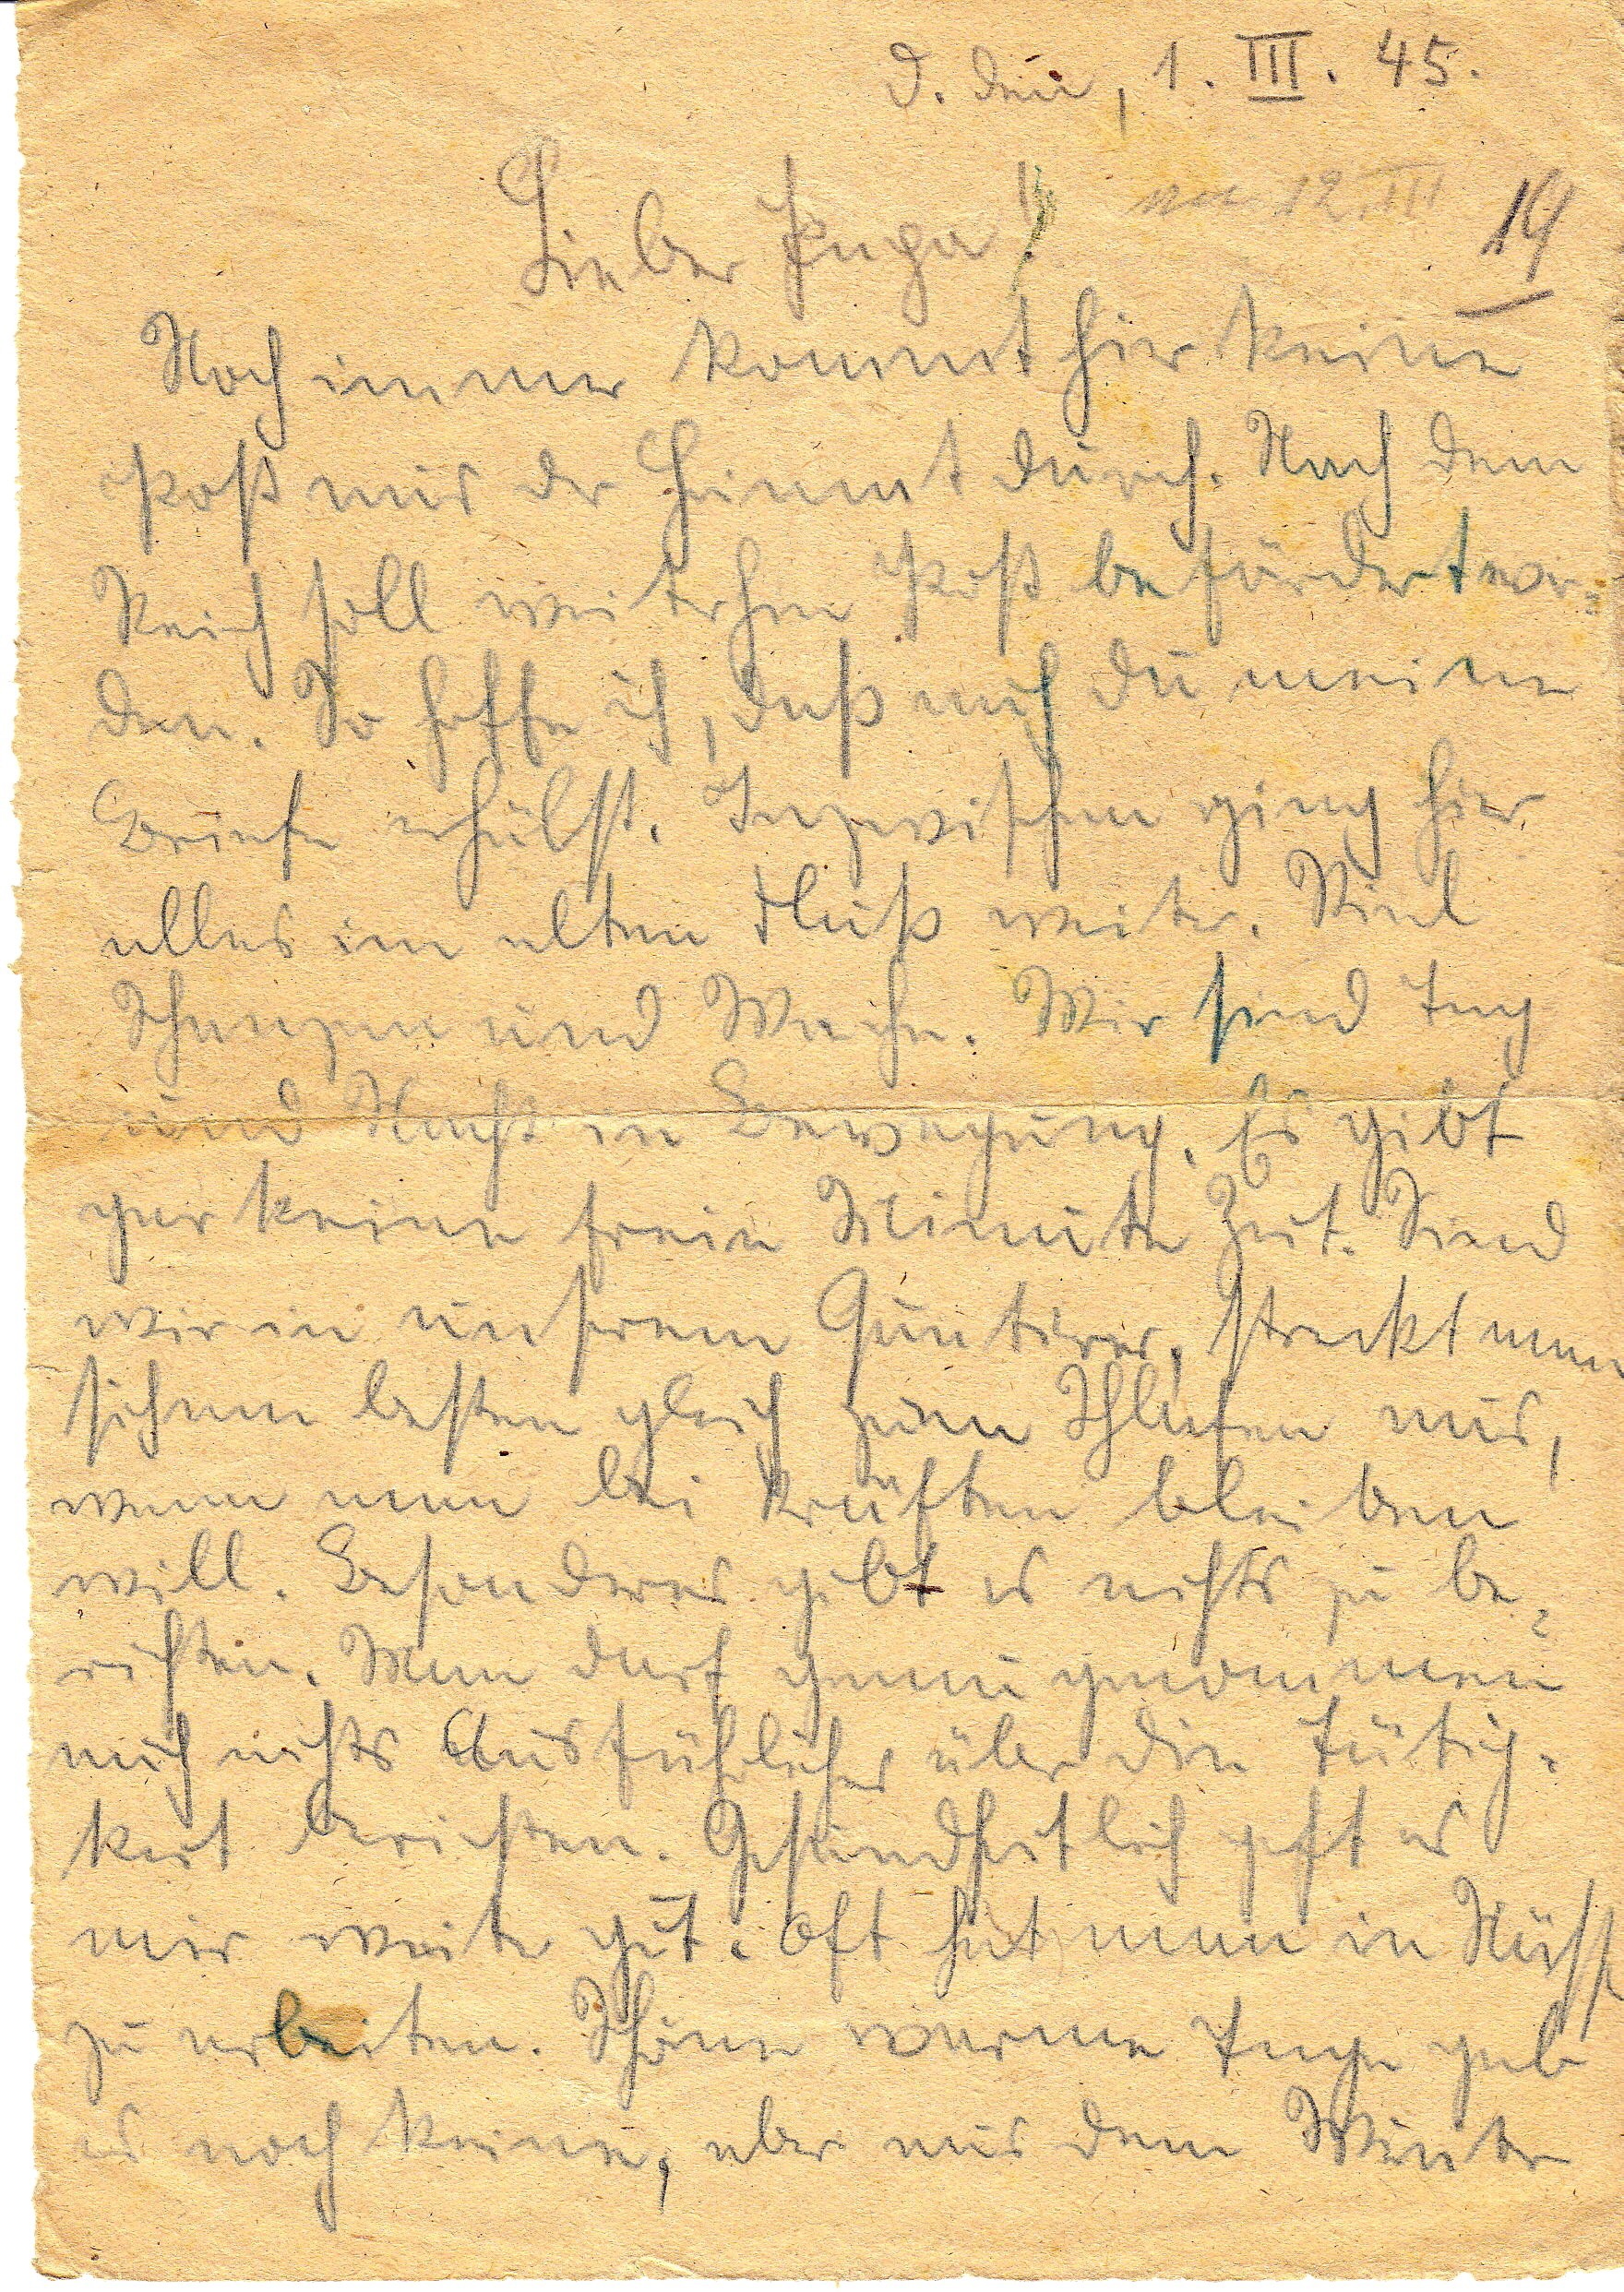 d. den, 1. III. 45.
Lieber Papa!
12. III
14
Noch immer kommt hier keine
Post aus der Heimat durch. Nach dem
Reich soll weiterhin Post befördert wer=
den. So hoffe ich, daß auch du meine
Briefe erhälst. Inzwischen ging hier
alles im alten Fluß weiter. Viel
Schanzen und Wache. Wir sind Tag
und Nacht in Bewegung. Es gibt
gar keine freie Minute Zeit. Sind
wir in unserem Quartier, streckt man
sich am besten gleich zum Schlafen aus,
wenn man bei Kräften bleiben
will. Besonderes gibt es nichts zu be=
richten. Man darf genau genommen
auch nichts Ausführliches über die Tätig=
keit berichten. Gesundheitlich geht es
mir weiter gut. Oft hat man in Nässe
zu arbeiten. Schöne warme Tage gab
es noch keine, aber aus dem Winter